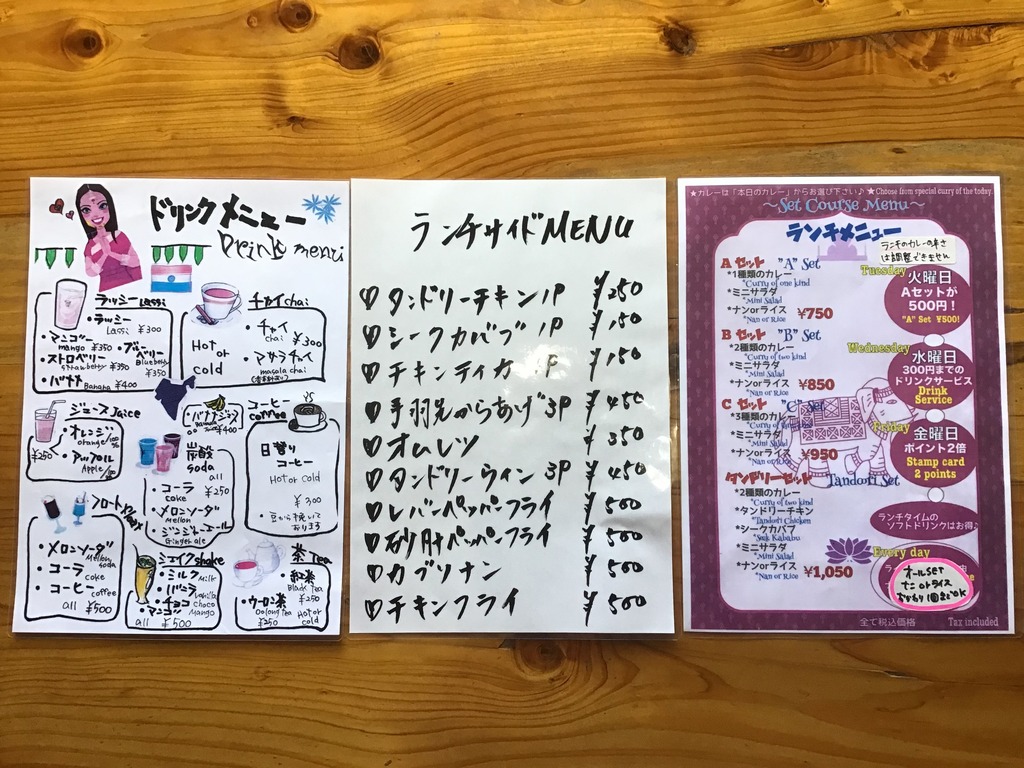 ドリンクメニュー
Drink menu
ラッシー Lassi
・ラッシー
Lassi ¥300
・マンゴー
mango ¥350
・ストロベリー
strawberry ¥350
・ブルーベリー
Blueberry
¥350
・バナナ
Banana ¥400
Hot
or
cold
チャイ chai
・チャイ
chai
¥300
・マサラチャイ
masala chai
ジュース Juice
・オレンジ
orange/100%
¥250
・アップル
Apple/100
・バナナジュース
¥400
炭酸
soda
all
・コーラ ¥250
coke
・メロンソーダ
Mellon
・ジンジャーエール
Ginger ale
コーヒー
coffee
日替り
コーヒー
Hot or cold
¥300
・豆から挽いて
おります
フロート Float
・メロンソーダ
Mellon
soda
・コーラ
coke
・コーヒー
coffee
all ¥500
シェイク shake
・ミルク Milk
・バニラ vanilla
・チョコ choco
・マンゴー Mango
all ¥500
茶 Tea
・紅茶
Black Tea
¥250
・ウーロン茶
Oolong Tea
¥250
Hot or
cold
ランチサイドMENU
♡タンドリーチキン1P ¥250
♡シークカバブ 1P ¥150
♡チキンティカ 1P ¥150
♡手羽先からあげ3P ¥450
♡オムレツ ¥350
♡タンドリーウイン 3P ¥450
♡レバーペッパーフライ ¥500
♡砂肝ペッパーフライ ¥500
♡カブリナン ¥500
♡チキンフライ ¥500
★カレーは「本日のカレー」からお選び下さい♪ ★Choose from special curry of the today.
～Set Course Menu～
ランチメニュー
ランチのカレーの辛さ
は調整できません
Aセット "A" Set
*1種類のカレー
"Curry of one kind
*ミニサラダ
"Mini Salad
*ナンorライス ¥750
"Nan or Rice
Bセット "B" Set
*2種類のカレー
"Curry of two kind
*ミニサラダ
"Mini Salad
*ナンorライス ¥850
"Nan or Rice
Cセット "C" Set
*3種類のカレー
*ミニサラダ
"Mini Salad
*ナンorライス ¥950
"Nan or Rice
タンドリーセット Tandori Set
*2種類のカレー
"Curry of two kind
*タンドリーチキン
"Tandori Chicken
*シークカバブ
"Seek Kababu
*ミニサラダ
"Mini Salad
*ナンorライス ¥1,050
"Nan or Rice
Tuesday
火曜日
Aセットが
500円!
"A" Set ¥500!
Wednesday
水曜日
300円までの
ドリンクサービス
Drink
Service
Friday
金曜日
ポイント2倍
Stamp card
2 points
ランチタイムの
ソフトドリンクはお得♪
Every day
オールSET
ナンorライス
おかわり1回までOK
全て税込価格 Tax included